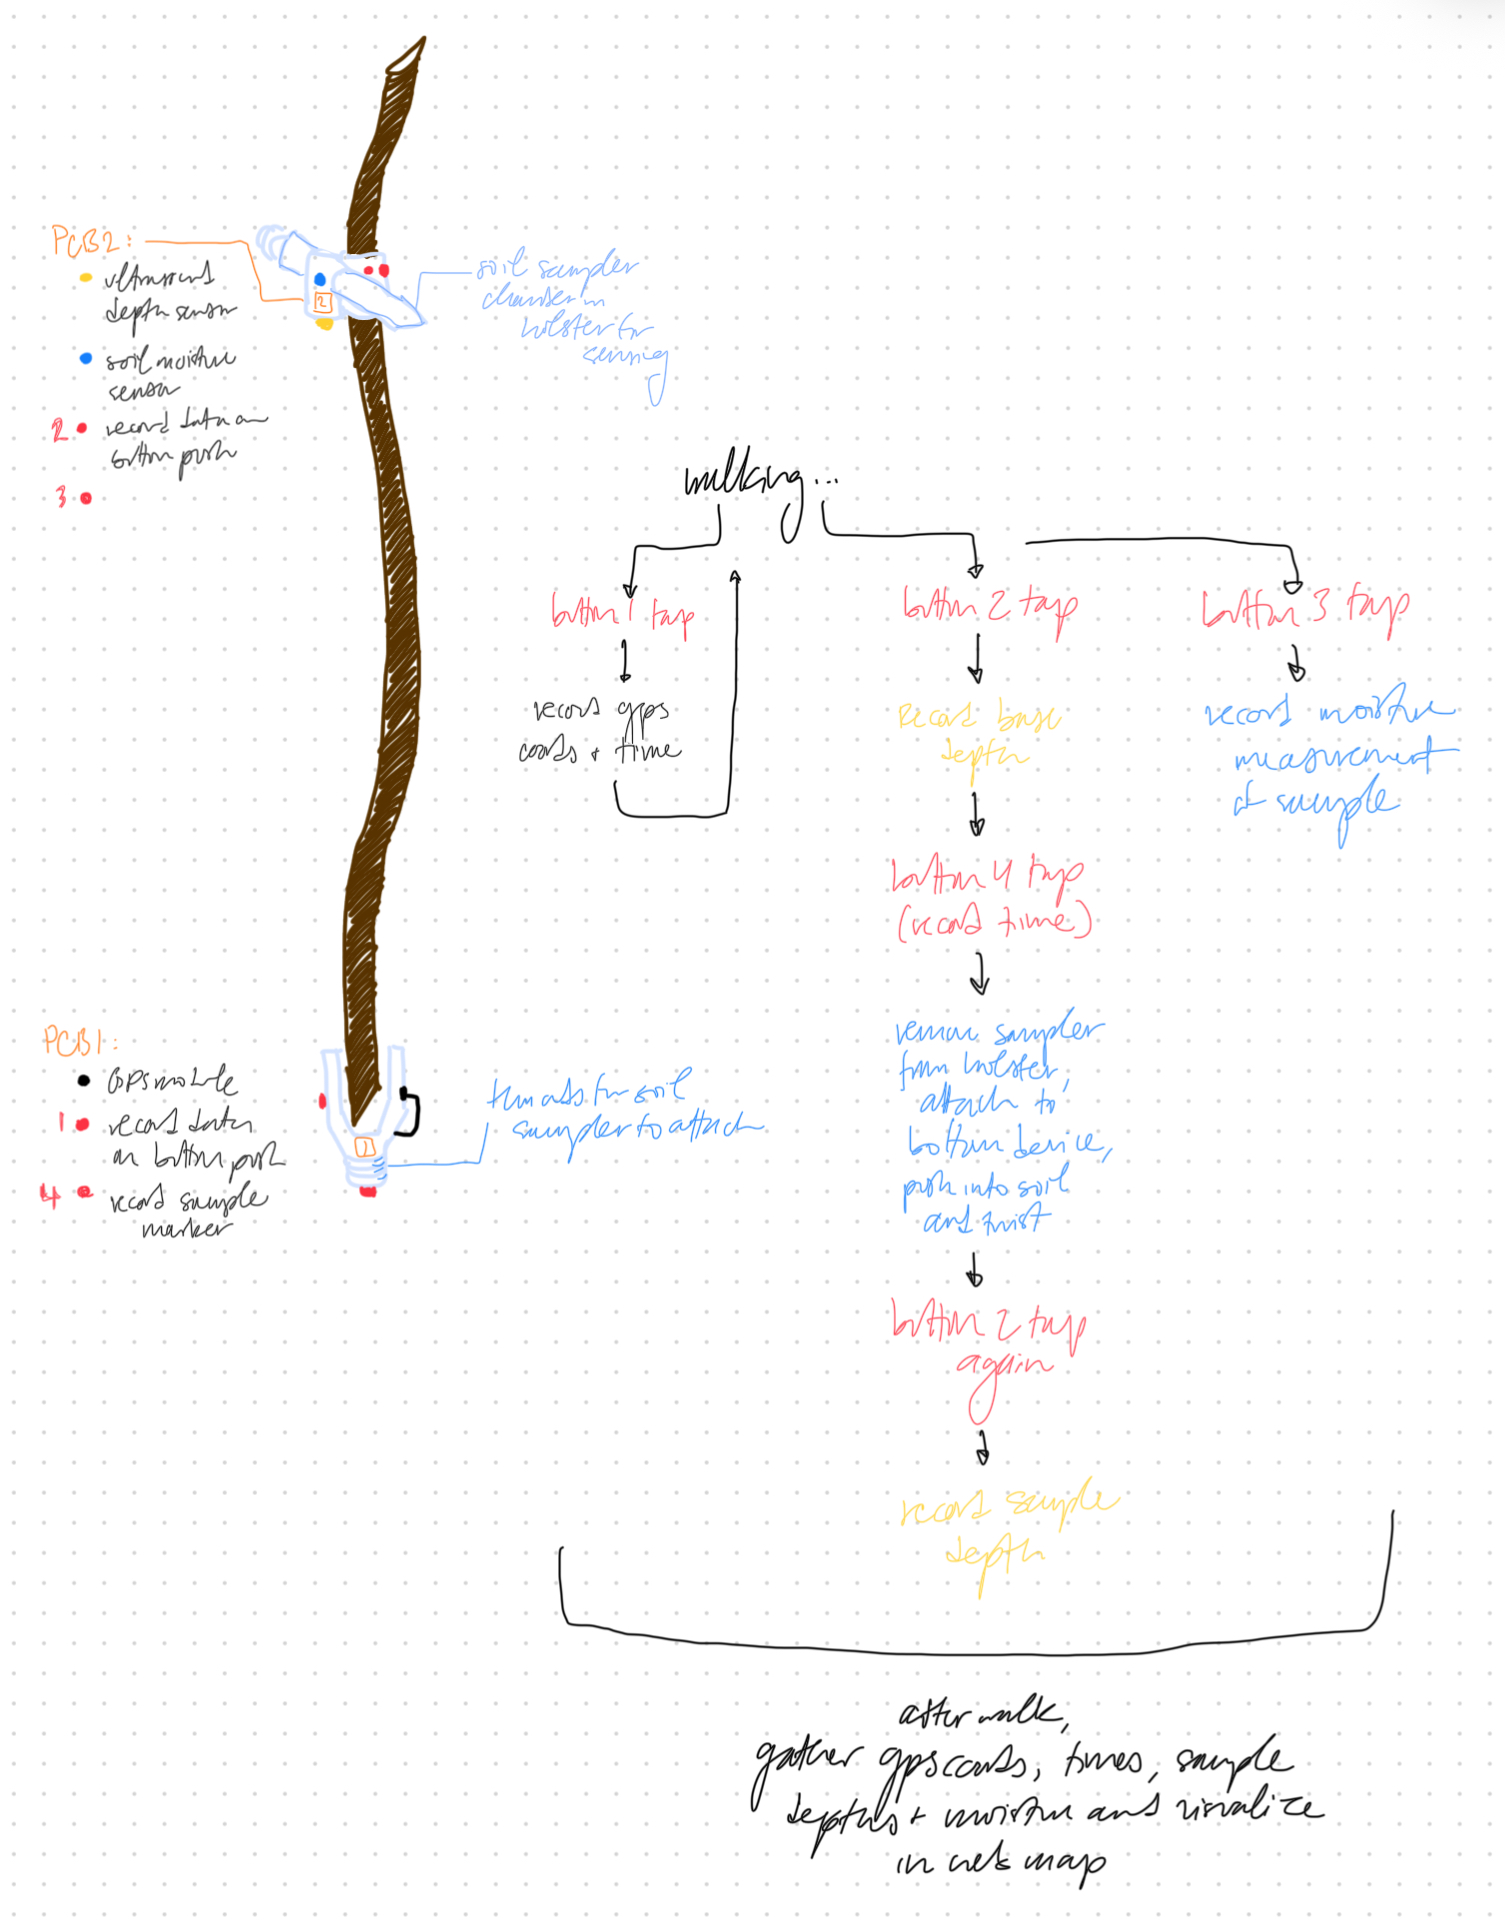 PCB2:
ultrasound
depth sensor
soil moisture
sensor
2 record data on
button push
3
2
soil sampler
chamber in
holster for
sensing
walking...
button 1 tap
record gps
coords + time
button 2 tap
Record base
depth
button 4 tap
(record time)
remove sampler
from holster,
attach to
bottom device,
push into soil
and twist
button 2 tap
again
record sample
depth
button 3 tap
record moisture
measurement
of sample
PCB1:
GPS module
1 record data
on button push
4 record sample
marker
1
threads for soil
sampler to attach
after walk,
gather gps coords, times, sample
depths + moisture and visualize
in web map